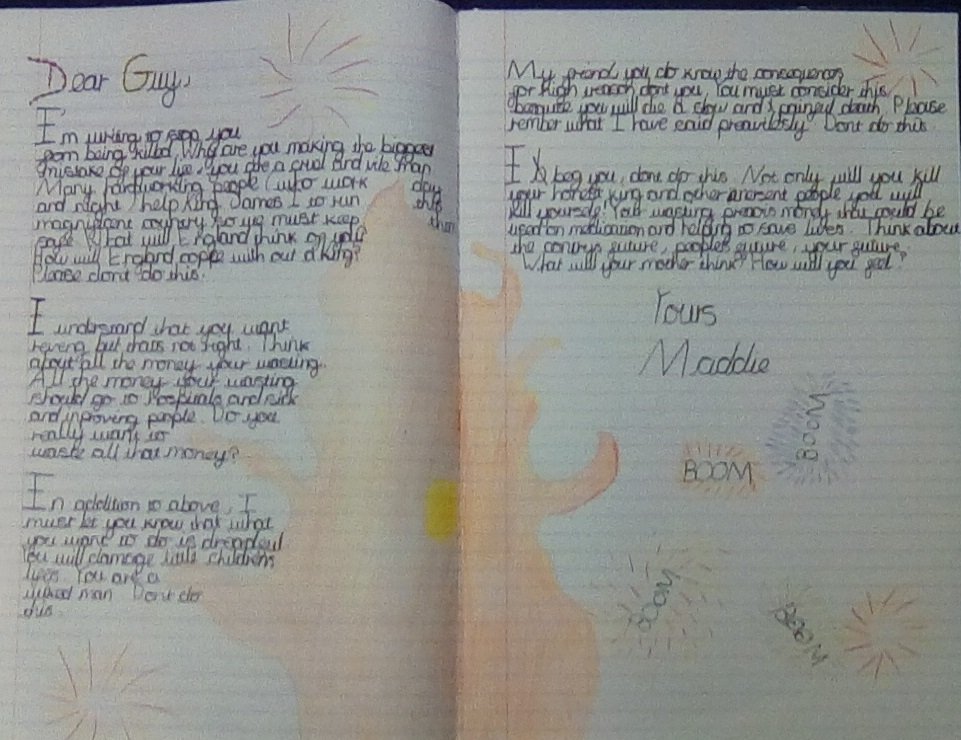 Dear Guy,
I'm writing to stop you
from being killed. Why are you making the biggest
mistake of your life, you are a cruel and vile man.
Many hardworking people (who work day
and night) help King James I to run this
magnificant country so ye must keep them
safe. What will England think of you?
How will England cople with out a king?
Please dont do this.
I understand that you want
reveng but thats not right. Think
about all the money your wasting.
All the money your wasting
should go to Hospitals and sick
and inproving people. Do you
really want to
waste all that money?
In addition to above, I
must let you know that what
you want to do is dreadful
You will damage little childrens
lives. You are a
wiked man Dont do
this.
My friend, you do know the consequences
for high treason dont you, You must consider this
because you will die a slow and pained death. Please
rember what I have said preavilously Dont do this.
I beg you, dont do this. Not only will you kill
your honest king and other people you will
kill yourself. Your wasting money that could be
used on medication and helping to save lives. Think about
the contrys future, peoples future, your future.
What will your mother think? How will you feel?
Yours
Maddie
BOOM
BOOM
BOOM
BOOM